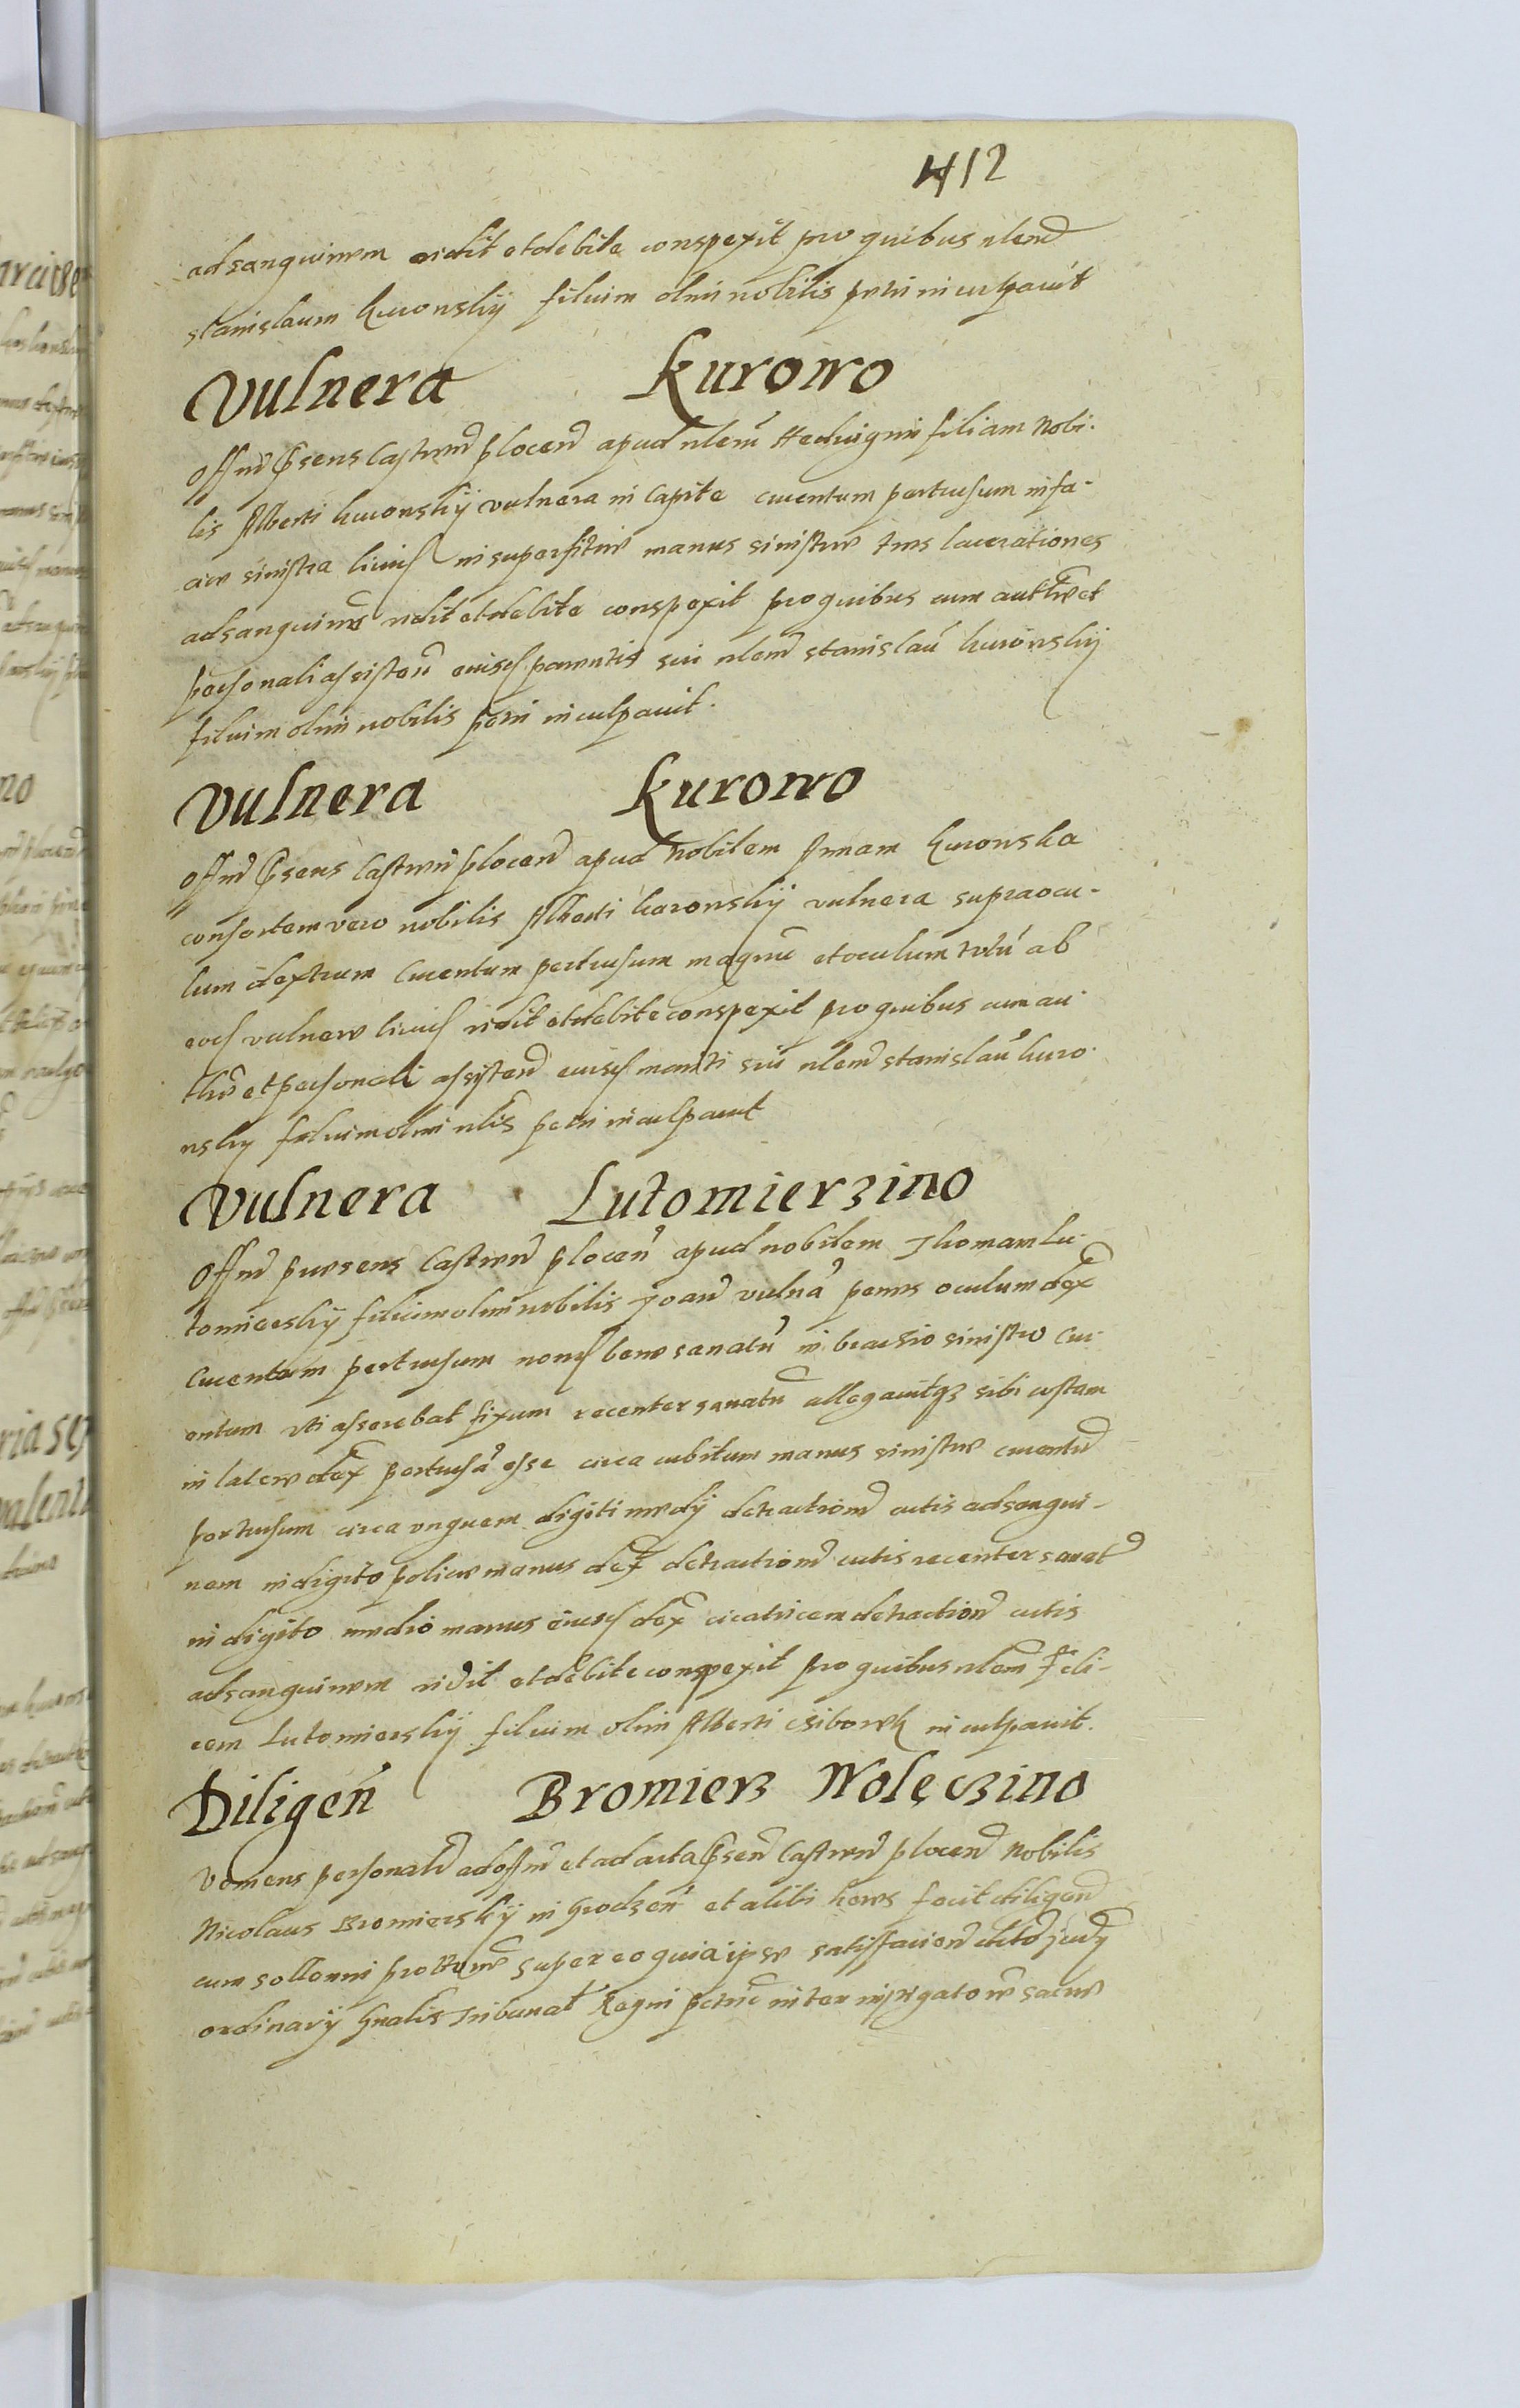 412
ad sanguinem vidit et debite conspexit pro quibus nlem
stanislaum kuronskij filium olim nobilis petri inculpauit
Vulnera Kurowo
Offm psens Castren plocen apud nlem Heduigim filiam Nobi-
lis Alberti kuronskij vulnera in Capite cruentum pertusum in fa-
cie sinistra liuid in superfitie manus sinistre tres lacerationes
ad sanguinem vidit et debite conspexit pro quibus cum auth et
personali assisten eiusd parentis sui nlem stanislau kuronskij
filium olim nobilis petri inculpauit.
Vulnera Kurowo
Offm psens Castren plocen apud Nobilem Annam kuronska
consortem vero nobilis Alberti kuronskij vulnera supra ocu-
lum dextrum Cruentum pertusum magnu et oculum totu ab
eod vulnere liuid vidit et debite conspexit pro quibus cum au-
thte et personali assisten eiusd mariti sui nlem stanislau kuro-
nskij filium olim nlis petri inculpauit
Vulnera Lutomierzino
Offm presens Castren plocen apud nobilem Thomam Lu-
tomierskij filium olim nobilis joan vulna penes oculum dex
Cruentum pertusum nond bene sanatu in brachio sinistro Cru-
entum vti asserebat fixum recenter sanatu allegauitqz sibi costam
in latere dex pertusa esse circa cubitum manus sinistre cruentu
pertusum circa vnguem digiti medij detraction cutis ad sangui-
nem in digito police manus dex detraction cutis recenter sanat
in digito medio manus eiusd dex cicatricem detraction cutis
ad sanguinem vidit et debite conspexit pro quibus nlem Feli-
cem Lutomierskij filium olim Alberti inculpauit.
Diligen Bromierz Wolęczino
Veniens personalr ad offm et ad acta psen Castren plocen Nobilis
Nicolaus Bromierskij in Grodzen et alibi heres fecit diligen
cum sollenni prottone super eo quia ipse satisfacien decto judy
ordinarij Gnalis Tribunal Regni petric inter instigatore sacre